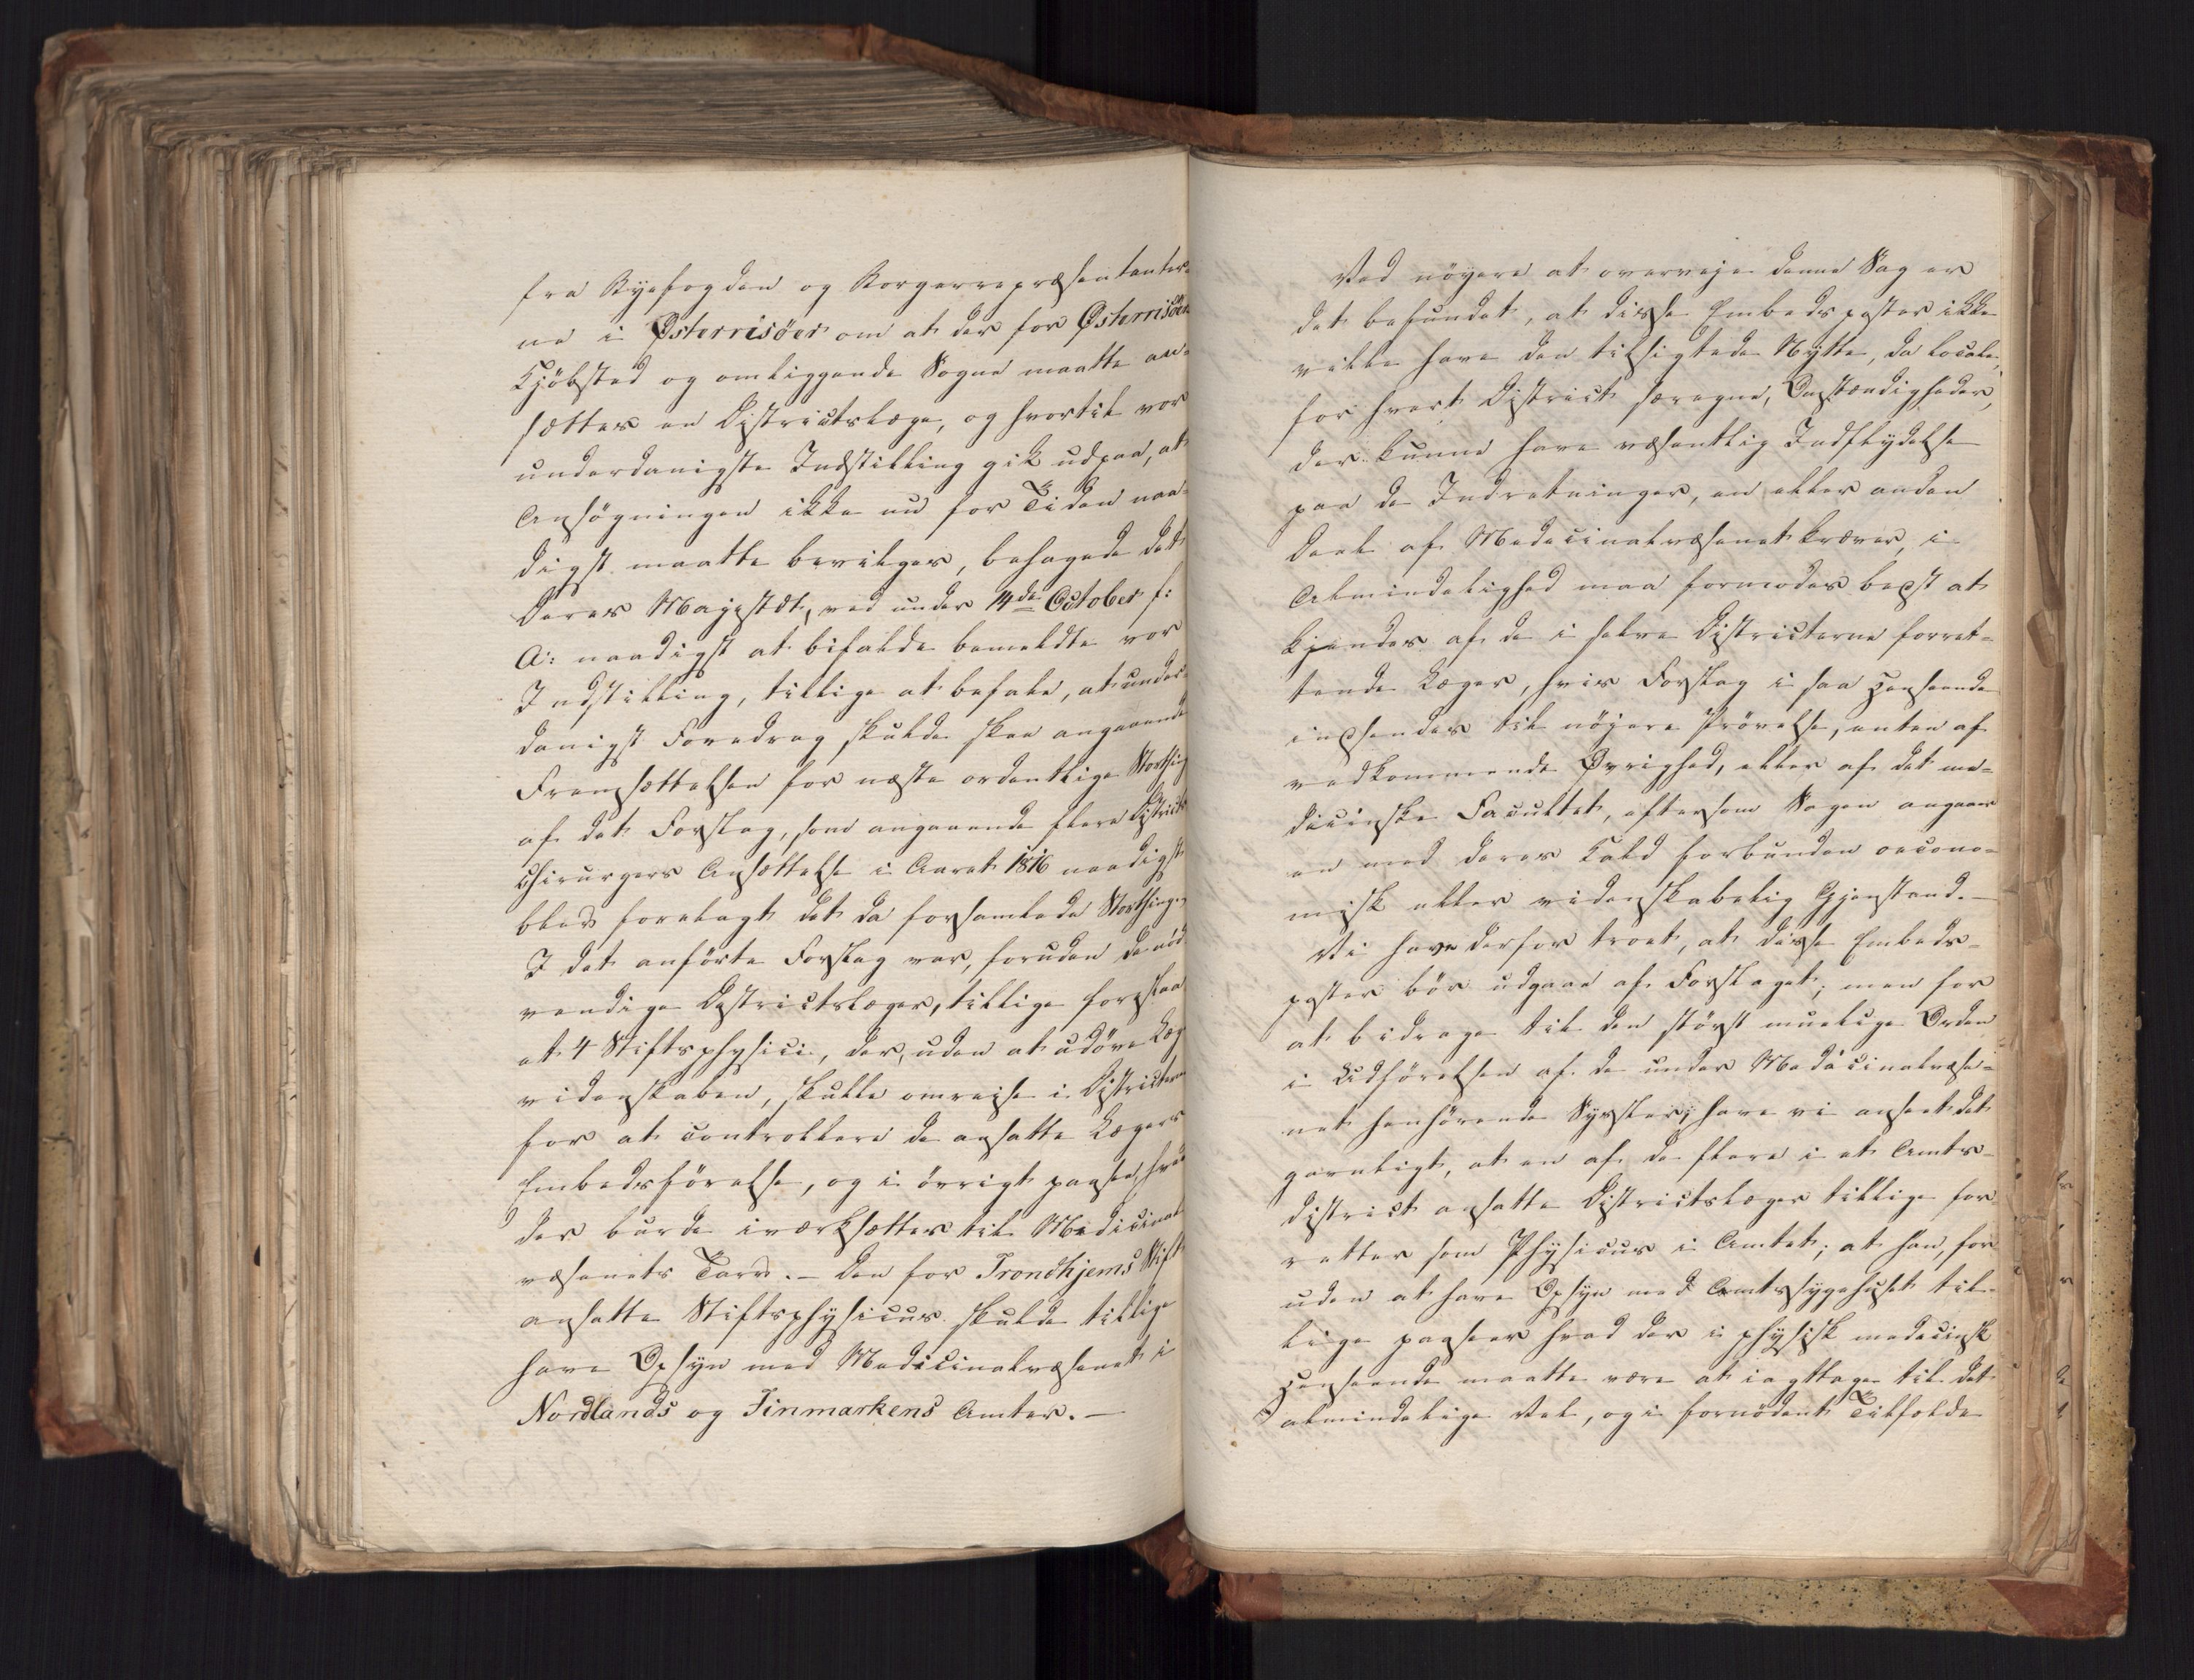 fra Byefogden og Borgerrepræsentanter-
ne i Østerrisöer om at der for Østerrisöer
Kjöbsted og omliggende Sogne maatte an-
sættes en Districtslæge, og hvortil vor
underdanigste Indstilling gik udpaa, at
Ansögningen ikke nu for Tiden naa-
digst maatte bevilges, behagede det
Deres Majestæt, ved under 14de October f:
A: naadigst at bifalde bemeldte vor
Indstilling, tillige at befale, at under-
danigst Foredrag skulde skee angaaende
Fremsættelsen for næste ordentlige Storthing
af det Forslag, som angaaende flere Districts
Chirurgers Ansættelse i Aaret 1816 naadigst
blev forelagt det da forsamlede Storthing.
I det anförte Forslag var, foruden de nöd-
vendige Districtslæger, tillige foreslaa-
et 4 Stiftsphysici, der, uden at udöve Læge-
videnskaben, skulle omreise i Districterne
for at controllere de ansatte Lægers
Embedsförelse, og i övrigt paasee, hvad
der burde iværksættes til Medicinal-
væsenets Tarv. – Den for Trondhjems Stift
ansatte Stiftsphysicus skulde tillige
have Opsyn med Medicinalvæsenet i
Nordlands og Finmarkens Amter. –
Ved nöyere at overveje denne Sag er
det befundet, at disse Embedsposter ikke
ville have den tilsigtede Nytte, da locale,
for hvert District særegne, Omstændigheder,
der kunne have væsentlig Indflydelse
paa de Indretninger, en eller anden
Deel af Medicinalvæsenet kræver, i
Almindelighed maa formodes bedst at
kjendes af de i selve Districterne forret-
tende Læger, hvis Forslag i saa Henseende
indsendes til nöjere Prövelse, enten af
vedkommende Øvrighed, eller af det me-
dicinske Facultet, eftersom Sagen angaaer
en med deres Kald forbunden oecono-
misk eller videnskabelig Gjenstand. –
Vi have derfor troet, at disse Embeds-
poster bör udgaae af Forslaget; men for
at bidrage til den störst muelige Orden
i Udförelsen af de under Medicinalvæse-
net henhörende Sysler, have vi anseet det
gavnligt, at en af de flere i et Amts-
district ansatte Districtslæger tillige for-
retter som Physicus i Amtet; at han, for-
uden at have Opsyn med Amtssygehuset til-
lige paaseer hvad der i physisk medicinsk
Henseende maatte være at iagttage til det
almindelige Vel, og i fornödent Tilfælde